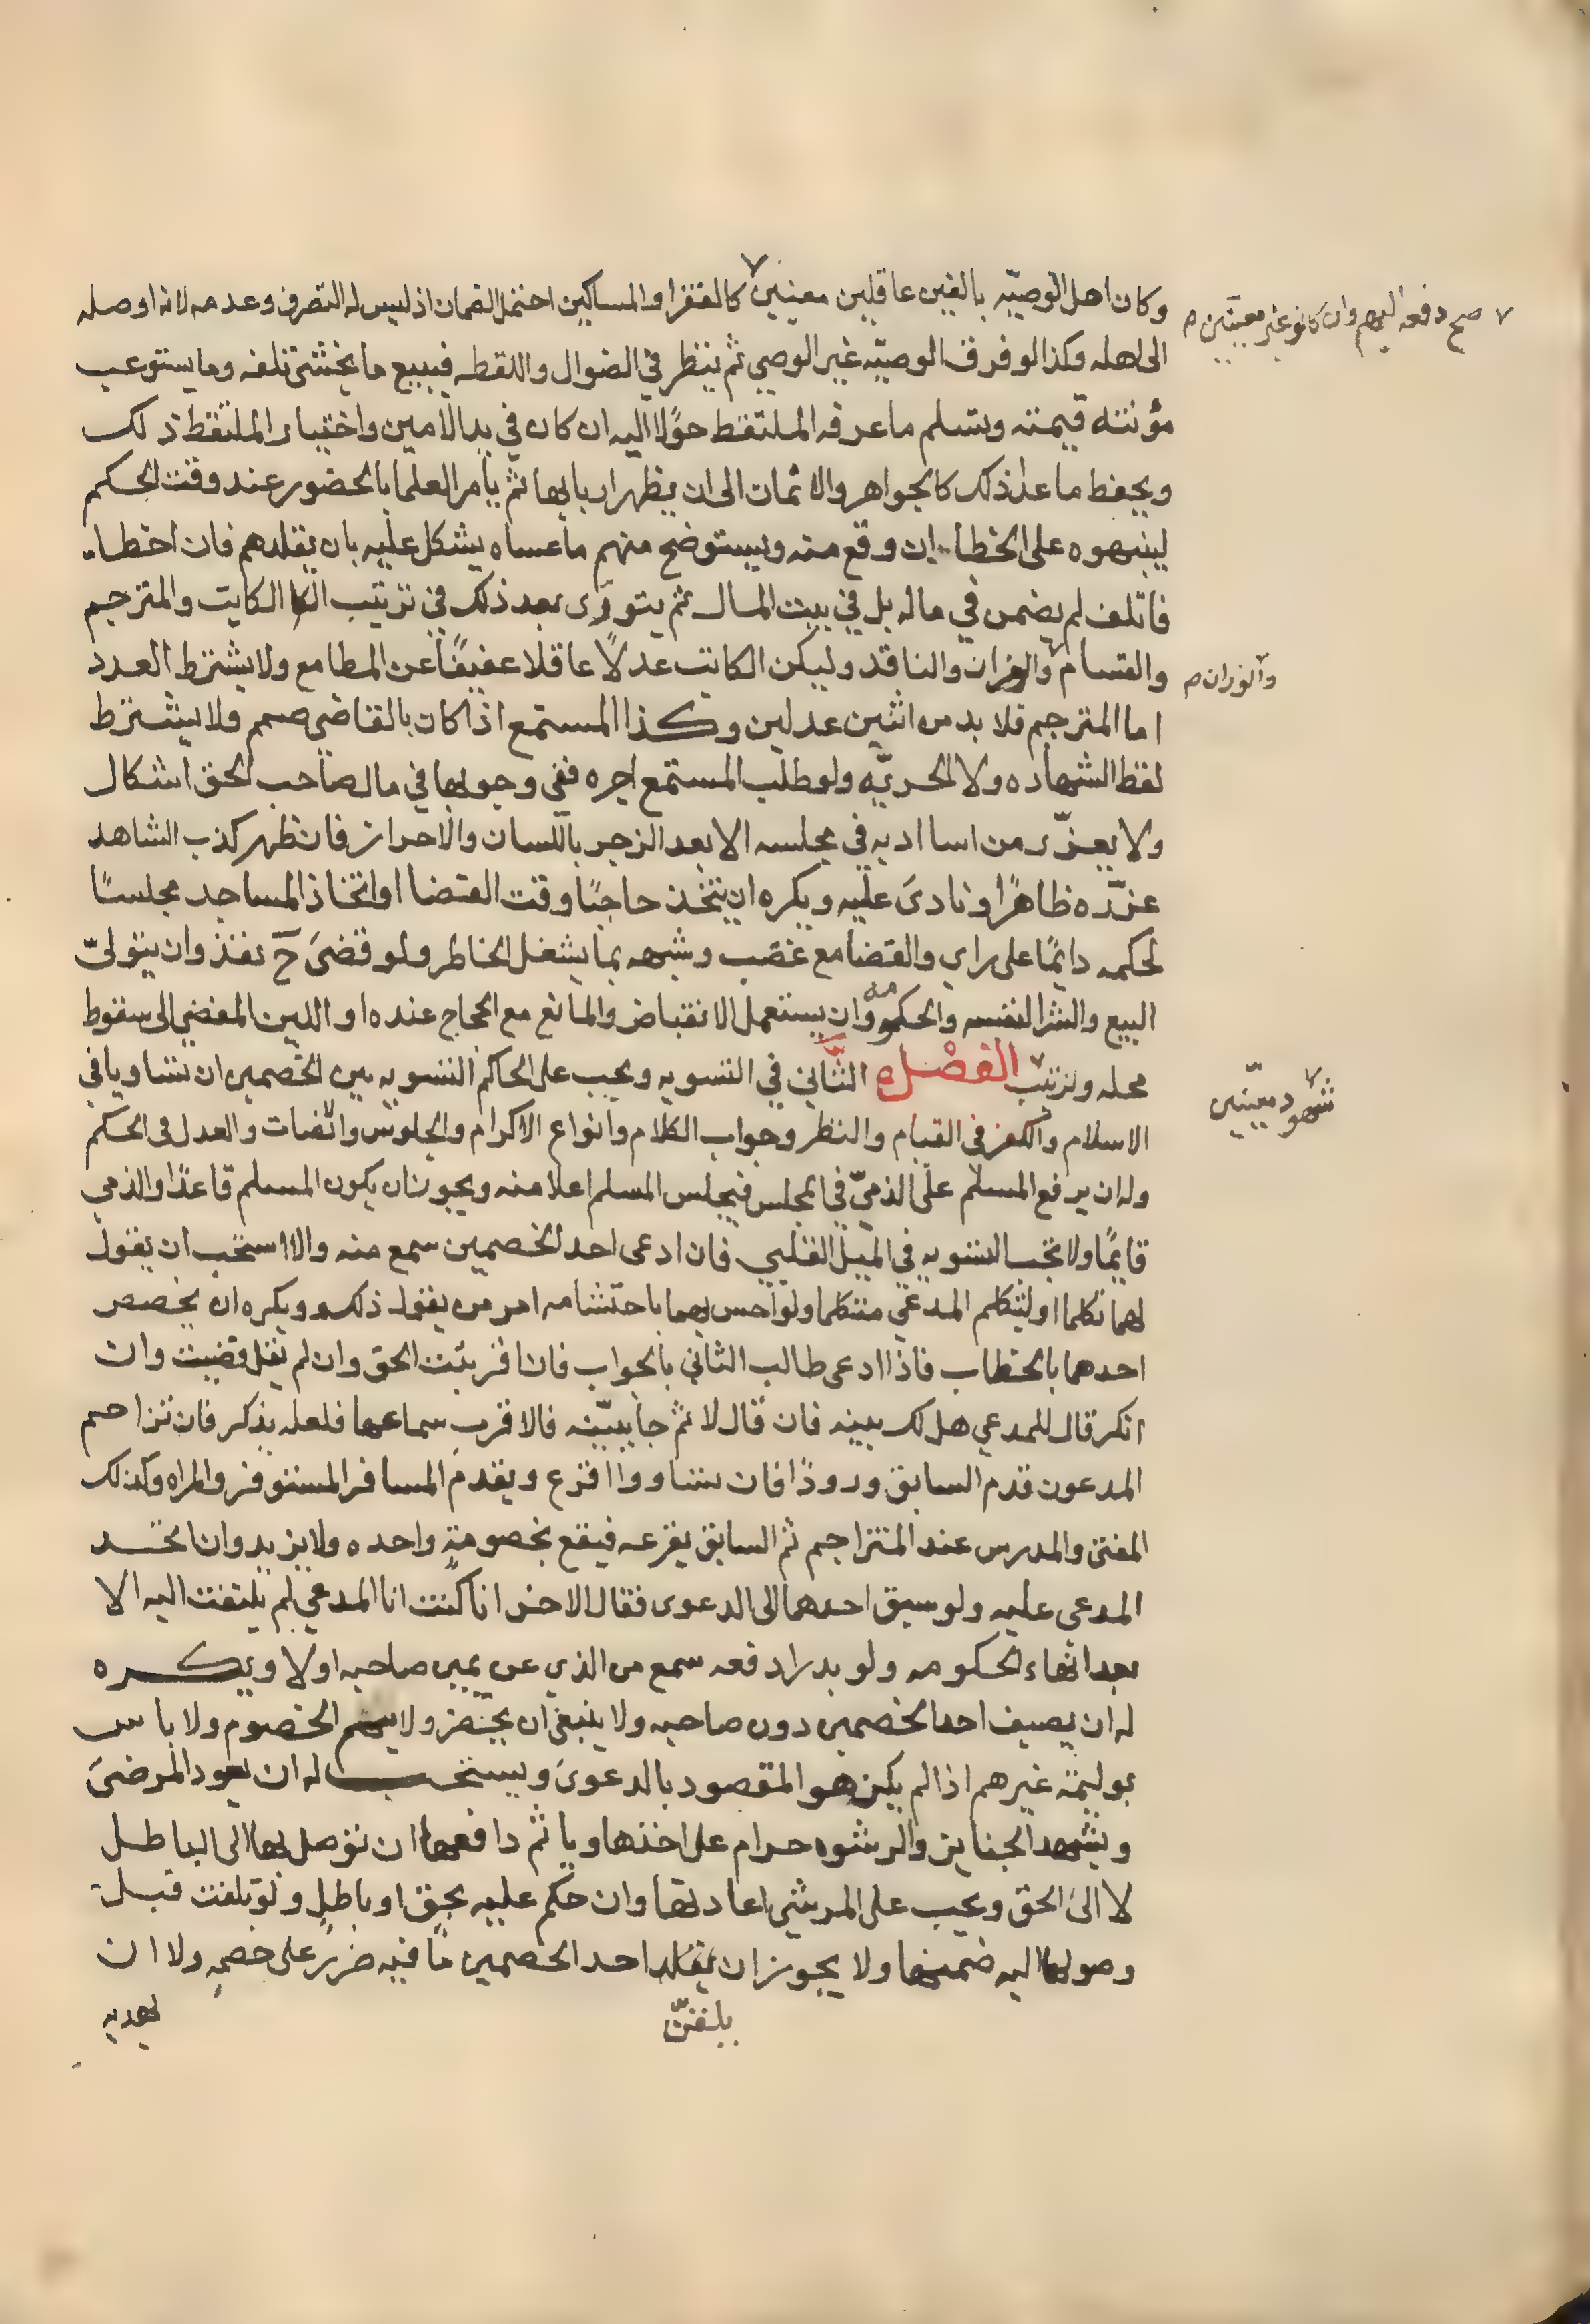 وكان اهل الوصيّه بالغين عاقلين معينين ٧ كالفقرا والمساكين احتمل الضمان اذ ليس له التصرف وعدمه لانه اوصله
٧ صح دفعه اليهم وان كانو غير معيّنين م
الى اهله وكذا لو فرق الوصيّه غير الوصي ثم ينظر في الضوال واللقطه فيبيع ما يخشى تلفه وما يستوعب
مؤنته قيمته ويتسلم ما عرفه الملتقط حوًلا اليه ان كان في يد الامين واختيار الملتقط ذلك
ويحفظ ما عدا ذلك كالجواهر والاثمان الى ان يظهر اربابها ثم يامر العلما بالحضور عند وقت الحكم
لينبهوه على الخطاء ان وقع منه ويستوضح منهم ما عساه يشكل عليه بان يقلدهم فان اخطاء
فاتلف لم يضمن في ماله بل في بيت المال ثم يتورّى بعد ذلك في ترتيب الكاتب والمترجم
والقسام والناقد وليكن الكاتب عدلًا عاقلا عفيفًا عن المطامع ولا يشترط العدد
والوزان م
اما المترجم فلا بد من اثنين عدلين وكذا المستمع اذا كان بالقاضى صمم ولا يشترط
لفظ الشهاده ولا الحريّه ولو طلب المستمع اجره ففى وجوبها في مال صاحب الحق اشكال
ولا يعزّر من اسا ادبه في مجلسه الا بعد الزجر باللسان والاحراز فان ظهر كذب الشاهد
عزّره ظاهرًا ونادىَ عليه ويكره ان يتخذ حاجبًا وقت القضا او اتخاذ المساجد مجلسًا
لحكمه دائمًا على راي والقضا مع غضب وشبهه بما يشغل الخاطر ولو قضىَ حَ نفذ وان يتولىّ
البيع والشرا لنفسه والحكومه وان يستعمل الانقباض والمانع مع الحجاج عنده او اللين المفضي الى سقوط
محله وترتيب ٧ الفصل الثّاني في التسويه ويجب على الحاكم التسويه بين الخصمين ان تساويا في
٧ شهود معيّنين
الاسلام والكفر في القيام والنظر وجواب الكلام وانواع الاكرام والجلوس والانصات والعدل فى الحكم
وله ان يرفع المسلم على الذميّ في المجلس فيجلس المسلم اعلا منه ويجوز ان يكون المسلم قاعدًا والذمي
قايمًا ولا تجب التسويه في الميل القلبي فان ادعى احد الخصمين سمع منه والا استحب ان يقول
لهما تكلما او ليتكلم المدعي منكما ولو احس بهما باحتشامه امر من يقول ذلك ويكره ان يخصص
احدهما بالخطاب فاذا ادعى طالب الثاني بالجواب فان اقر يثبت الحق وان لم يقل قضيت وان
انكر قال للمدعي هل لك بينه فان قال لا ثم جا ببيّنه فالاقرب سماعها فلعله يذكر فان تزاحم
المدعون قدم السابق ورودًا فان تساووا اقرع ويقدم المسافر المستوفز والمراه وكذلك
المفتى والمدرس عند المتزاحم ثم السابق بقرعه فيقع بخصومةٍ واحده ولا يزيد وان اتحد
المدعى عليه ولو سبق احدهما الى الدعوى فقال الاخر انا كنت انا المدعي لم يلتفت اليه الا
بعد انتهاء الحكومه ولو بدرا دفعه سمع من الذي عن يمين صاحبه اولا ويكره
له ان يضيف احد الخصمين دون صاحبه ولا ينبغى ان يحضر ولايم الخصوم ولا باس
بوليمة غيرهم اذا لم يكن هو المقصود بالدعوىَ ويستحب له ان يعود المرضىَ
ويشهد الجنايز والرشوه حرام على اخذها وياثم دافعها ان توصل بها الى الباطل
لا الىَ الحق ويجب على المرتشي اعادتها وان حكم عليه بحقٍ او باطلٍ ولو تلفت قبل
وصولها اليه ضمنها ولا يجوز ان احد الخصمين ما فيه ضررٌ على خصمهِ ولا ان
يلقنّ
يهديه